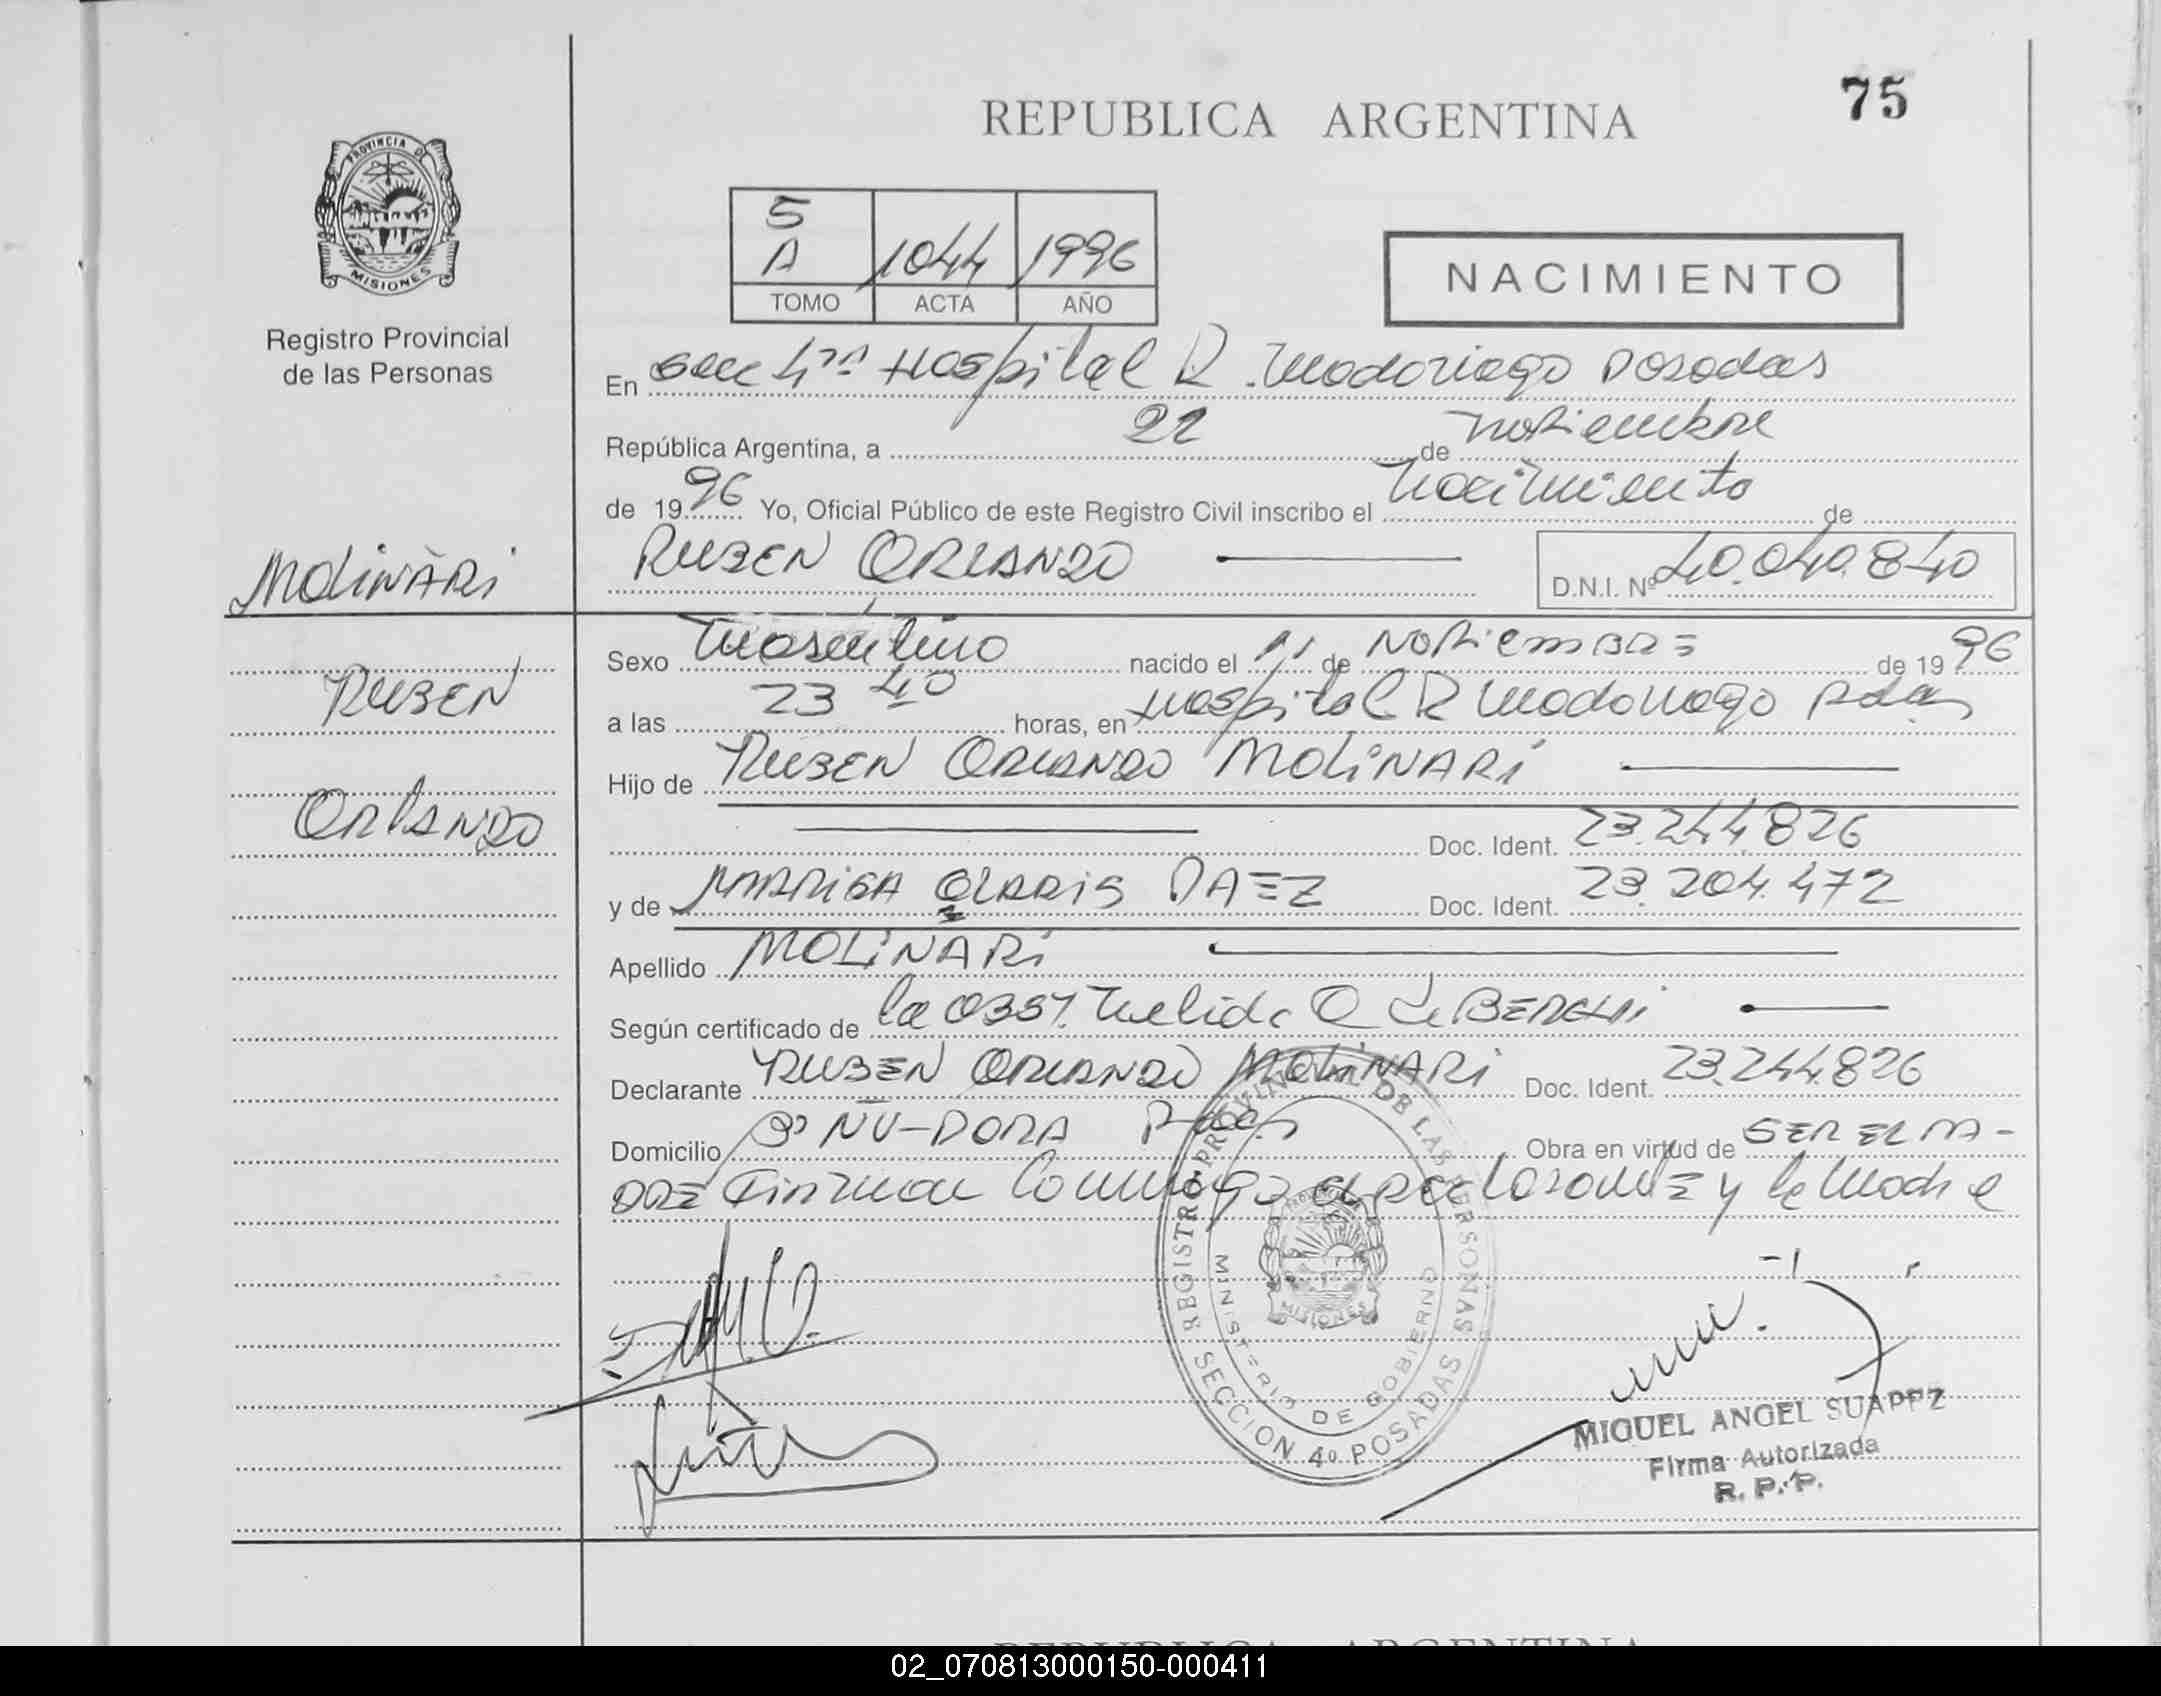 75
REPUBLICA ARGENTINA
PROVINCIA DE
MISIONES
Registro Provincial
de las Personas
5
A 1044 1996
TOMO ACTA AÑO
NACIMIENTO
En Secc 4ta Hospital R. Madariaga Posadas
República Argentina, a 22 de Noviembre
de 1996 Yo, Oficial Público de este Registro Civil inscribo el Nacimiento de
RUBEN ORLANDO D.N.I. Nº 40.040.840
MOLINARI
RUBEN
ORLANDO
Sexo Masculino nacido el 11 de NOVIEMBRE de 1996
a las 23 40 horas, en Hospital R Madariaga Pdas
Hijo de RUBEN ORLANDO MOLINARI
Doc. Ident. 23.244.826
y de MARISA PAEZ Doc. Ident. 23.204.472
Apellido MOLINARI
Según certificado de la Obst. Nelida de
Declarante RUBEN ORLANDO MOLINARI Doc. Ident. 23.244.826
Domicilio Bº ÑU-PORA Pdas Obra en virtud de SER EL PA-
DRE Firman Conmigo el declarante y la Madre
REGISTRO PROVINCIAL DE LAS PERSONAS
MINISTERIO DE GOBIERNO
MISIONES
SECCION 4º POSADAS
MIGUEL ANGEL SUAREZ
Firma Autorizada
R. P. P.
REPUBLICA ARGENTINA
02_070813000150-000411